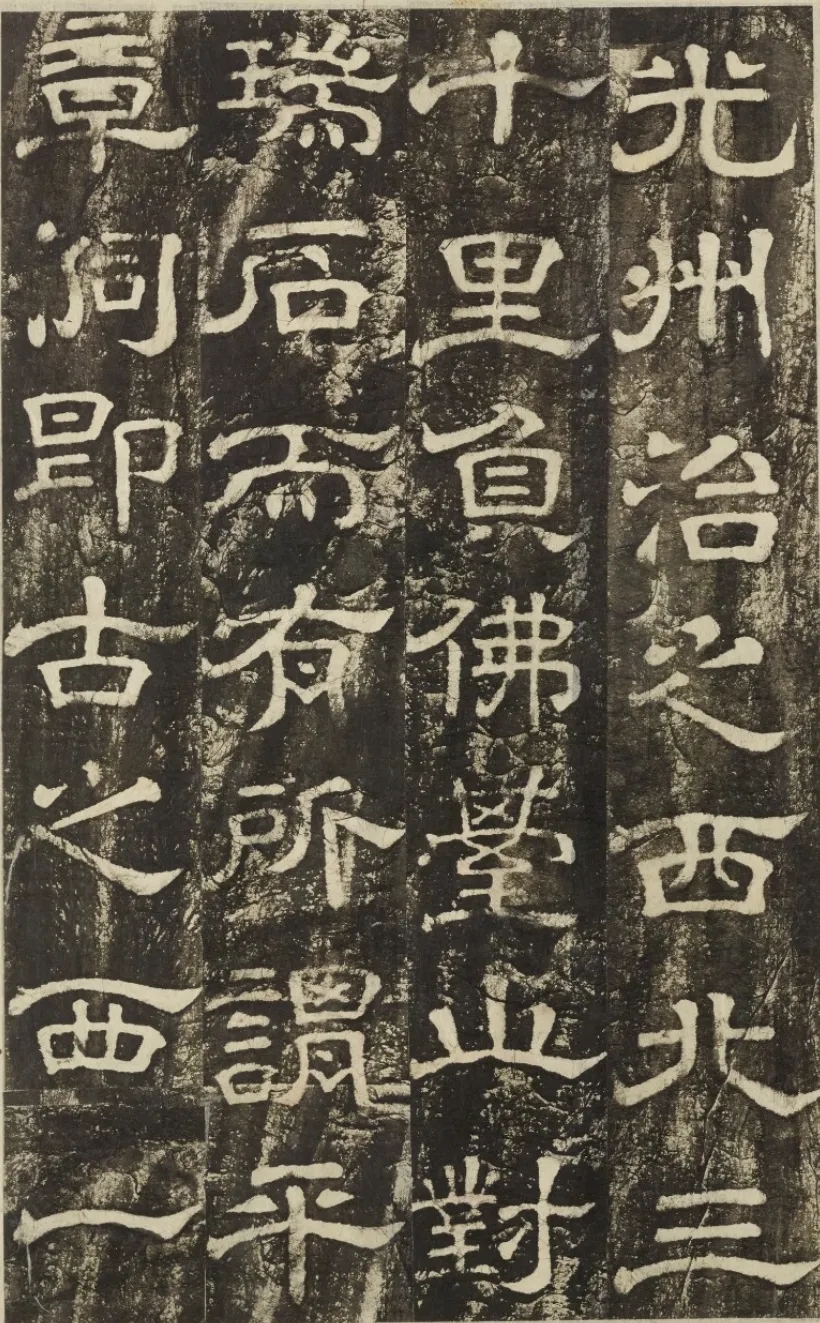 光州治之西北三
十里負佛臺山對
瑞石而有所謂平
章洞即古之西一